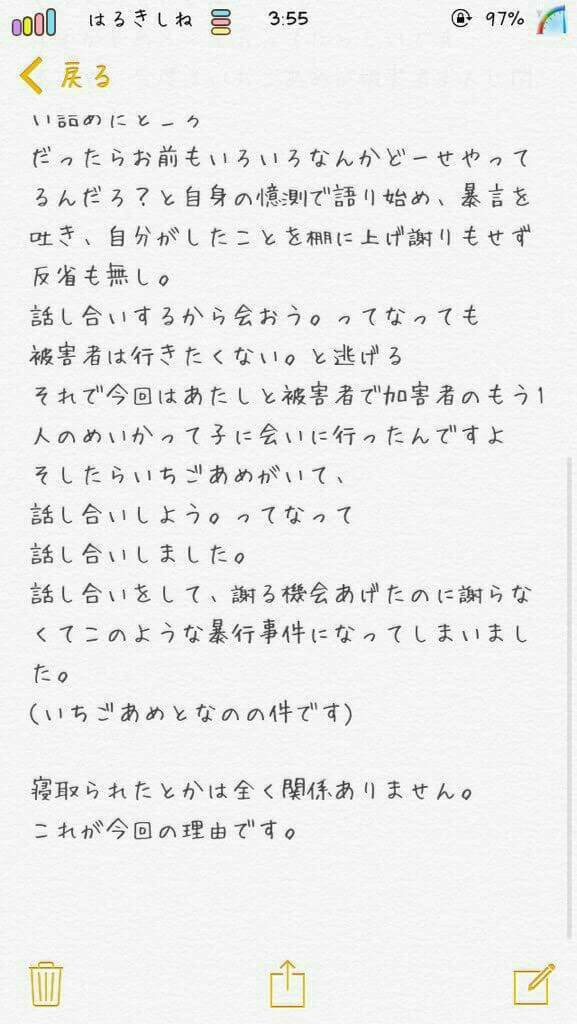 はるきしね 3:55 97%
戻る
だったらお前もいろいろなんかどーせやって
るんだろ？と自身の憶測で語り始め、暴言を
吐き、自分がしたことを棚に上げ謝りもせず
反省も無し。
話し合いするから会おう。ってなっても
被害者は行きたくない。と逃げる
それで今回はあたしと被害者で加害者のもう1
人のめいかって子に会いに行ったんですよ
そしたらいちごあめがいて、
話し合いしよう。ってなって
話し合いしました。
話し合いをして、謝る機会あげたのに謝らな
くてこのような暴行事件になってしまいまし
た。
(いちごあめとなのの件です)
寝取られたとかは全く関係ありません。
これが今回の理由です。